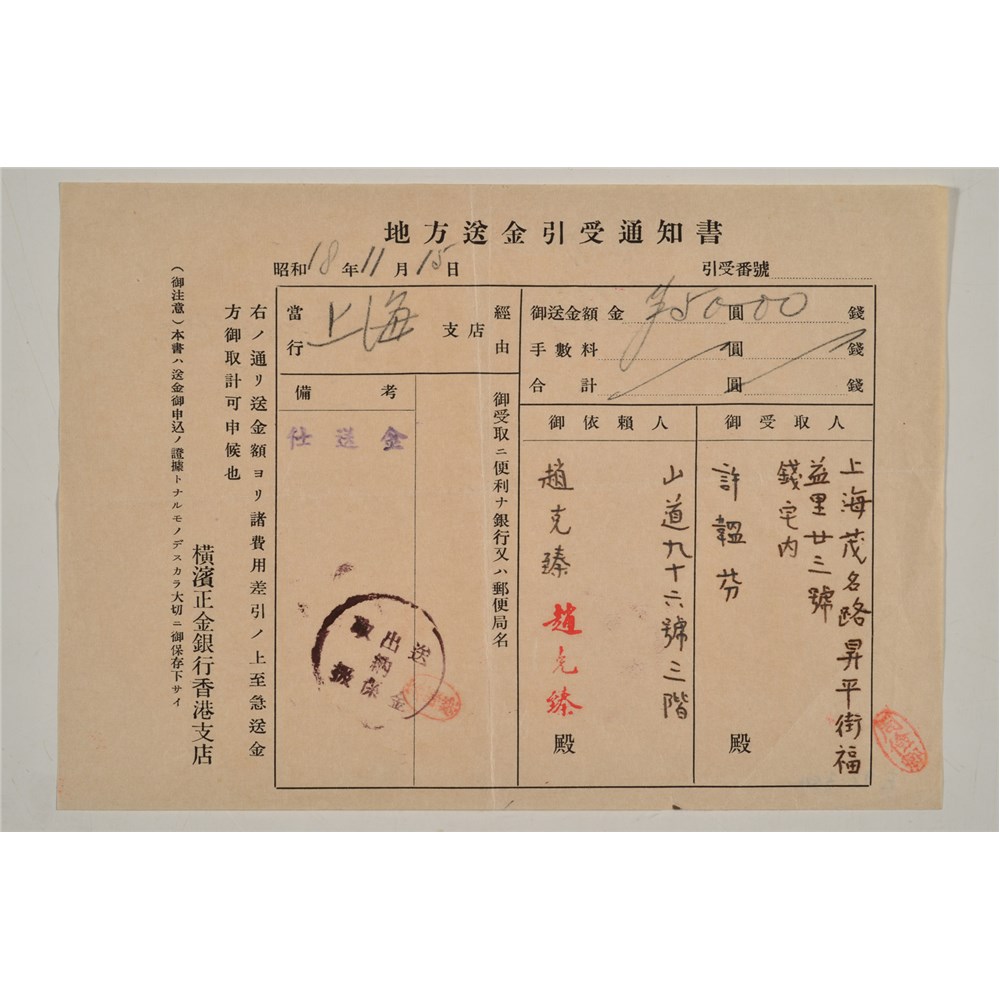 地方送金引受通知書
昭和18年11月15日
引受番號
御送金額 金 ¥50000 圓 錢
手數料 圓 錢
合計 圓 錢
御受取人
上海茂名路昇平街福
益里廿三號
錢宅内
許韞芬
殿
御依賴人
山道九十六號三階
趙克臻 趙克臻
殿
經由
當行 上海 支店
御受取ニ便利ナ銀行又ハ郵便局名
備考
仕送金
送金
出納係
取扱
右ノ通リ送金額ヨリ諸費用差引ノ上至急送金
方御取計可申候也
橫濱正金銀行香港支店
(御注意)本書ハ送金御申込ノ證據トナルモノデスカラ大切ニ御保存下サイ